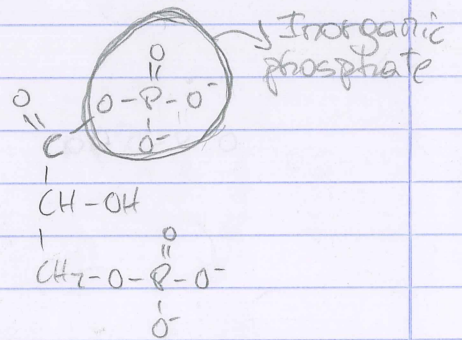 Inorganic
phosphate
O
||
O O-P-O⁻
|| |
C O⁻
|
CH-OH
| O
||
CH₂-O-P-O⁻
|
O⁻